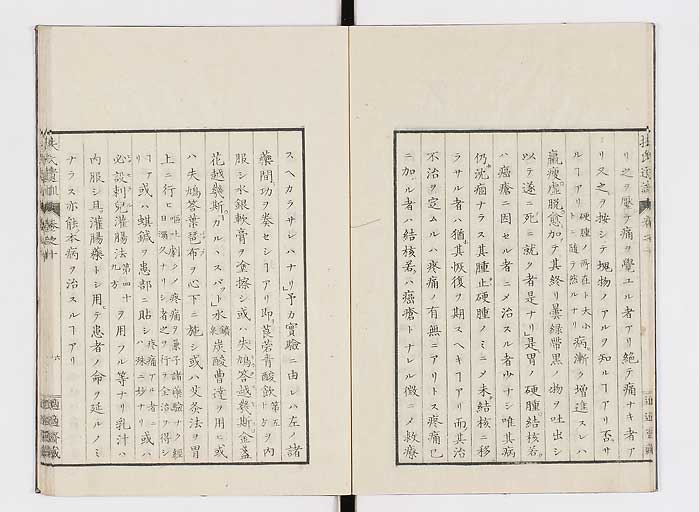 リ之ヲ壓テ痛ヲ覺ユル者アリ絶テ痛ナキ者ア
リ又之ヲ按シテ塊物ノアルヲ知ルヿアリ否サ
ルヿアリ硬腫ノ所在ト大小トニ隨テ然ルナリ病漸ク増進スレハ
羸瘦虚脱愈加テ其終リ曇緑帶黒ノ物ヲ吐出シ
以テ遂ニ死ニ就ク者是ナリ是胃ノ硬腫結核若ク
ハ癌瘡ニ因セル者ニメ治スル者少ナシ唯其病
仍沈痼ナラス其腫止硬腫ノミニメ未結核ニ移
ラサル者ハ猶其恢復ヲ期スヘキヿアリ而其治
不治ヲ定ムルハ疼痛ノ有無ニアリトス疼痛已
ニ加ハル者ハ結核若クハ癌瘡トナレル徴ニメ救療
スヘカラサレハナリ予カ實驗ニ由レハ左ノ諸
藥間功ヲ奏セシヿアリ即莨菪青酸飲第五十方ヲ内
服シ水銀軟膏ヲ塗擦シ或ハ失鳩答越幾斯金盞
花越幾斯カルヽスバット水鑛泉炭酸曹達ヲ用ヒ或
ハ失鳩答葉芭布ヲ心下ニ施シ或ハ艾灸法ヲ胃
上ニ行ヒ嘔吐劇クノ疼痛ヲ兼子諸藥驗ナク經日彌久ナリシ者之ヲ行ヲ全治ヲ得シ
ヿア或ハ蜞鍼ヲ患部ニ貼シ疼痛アル者ニハ殊ニ妙ナリ或ハ
必設刺兒灌腸法第四十九方ヲ用フル等ナリ乳汁ハ
内服シ且灌腸藥トシ用テ患者ノ命ヲ延ルノミ
ナラス亦能本病ヲ治スルヿアリ
卷之十
六